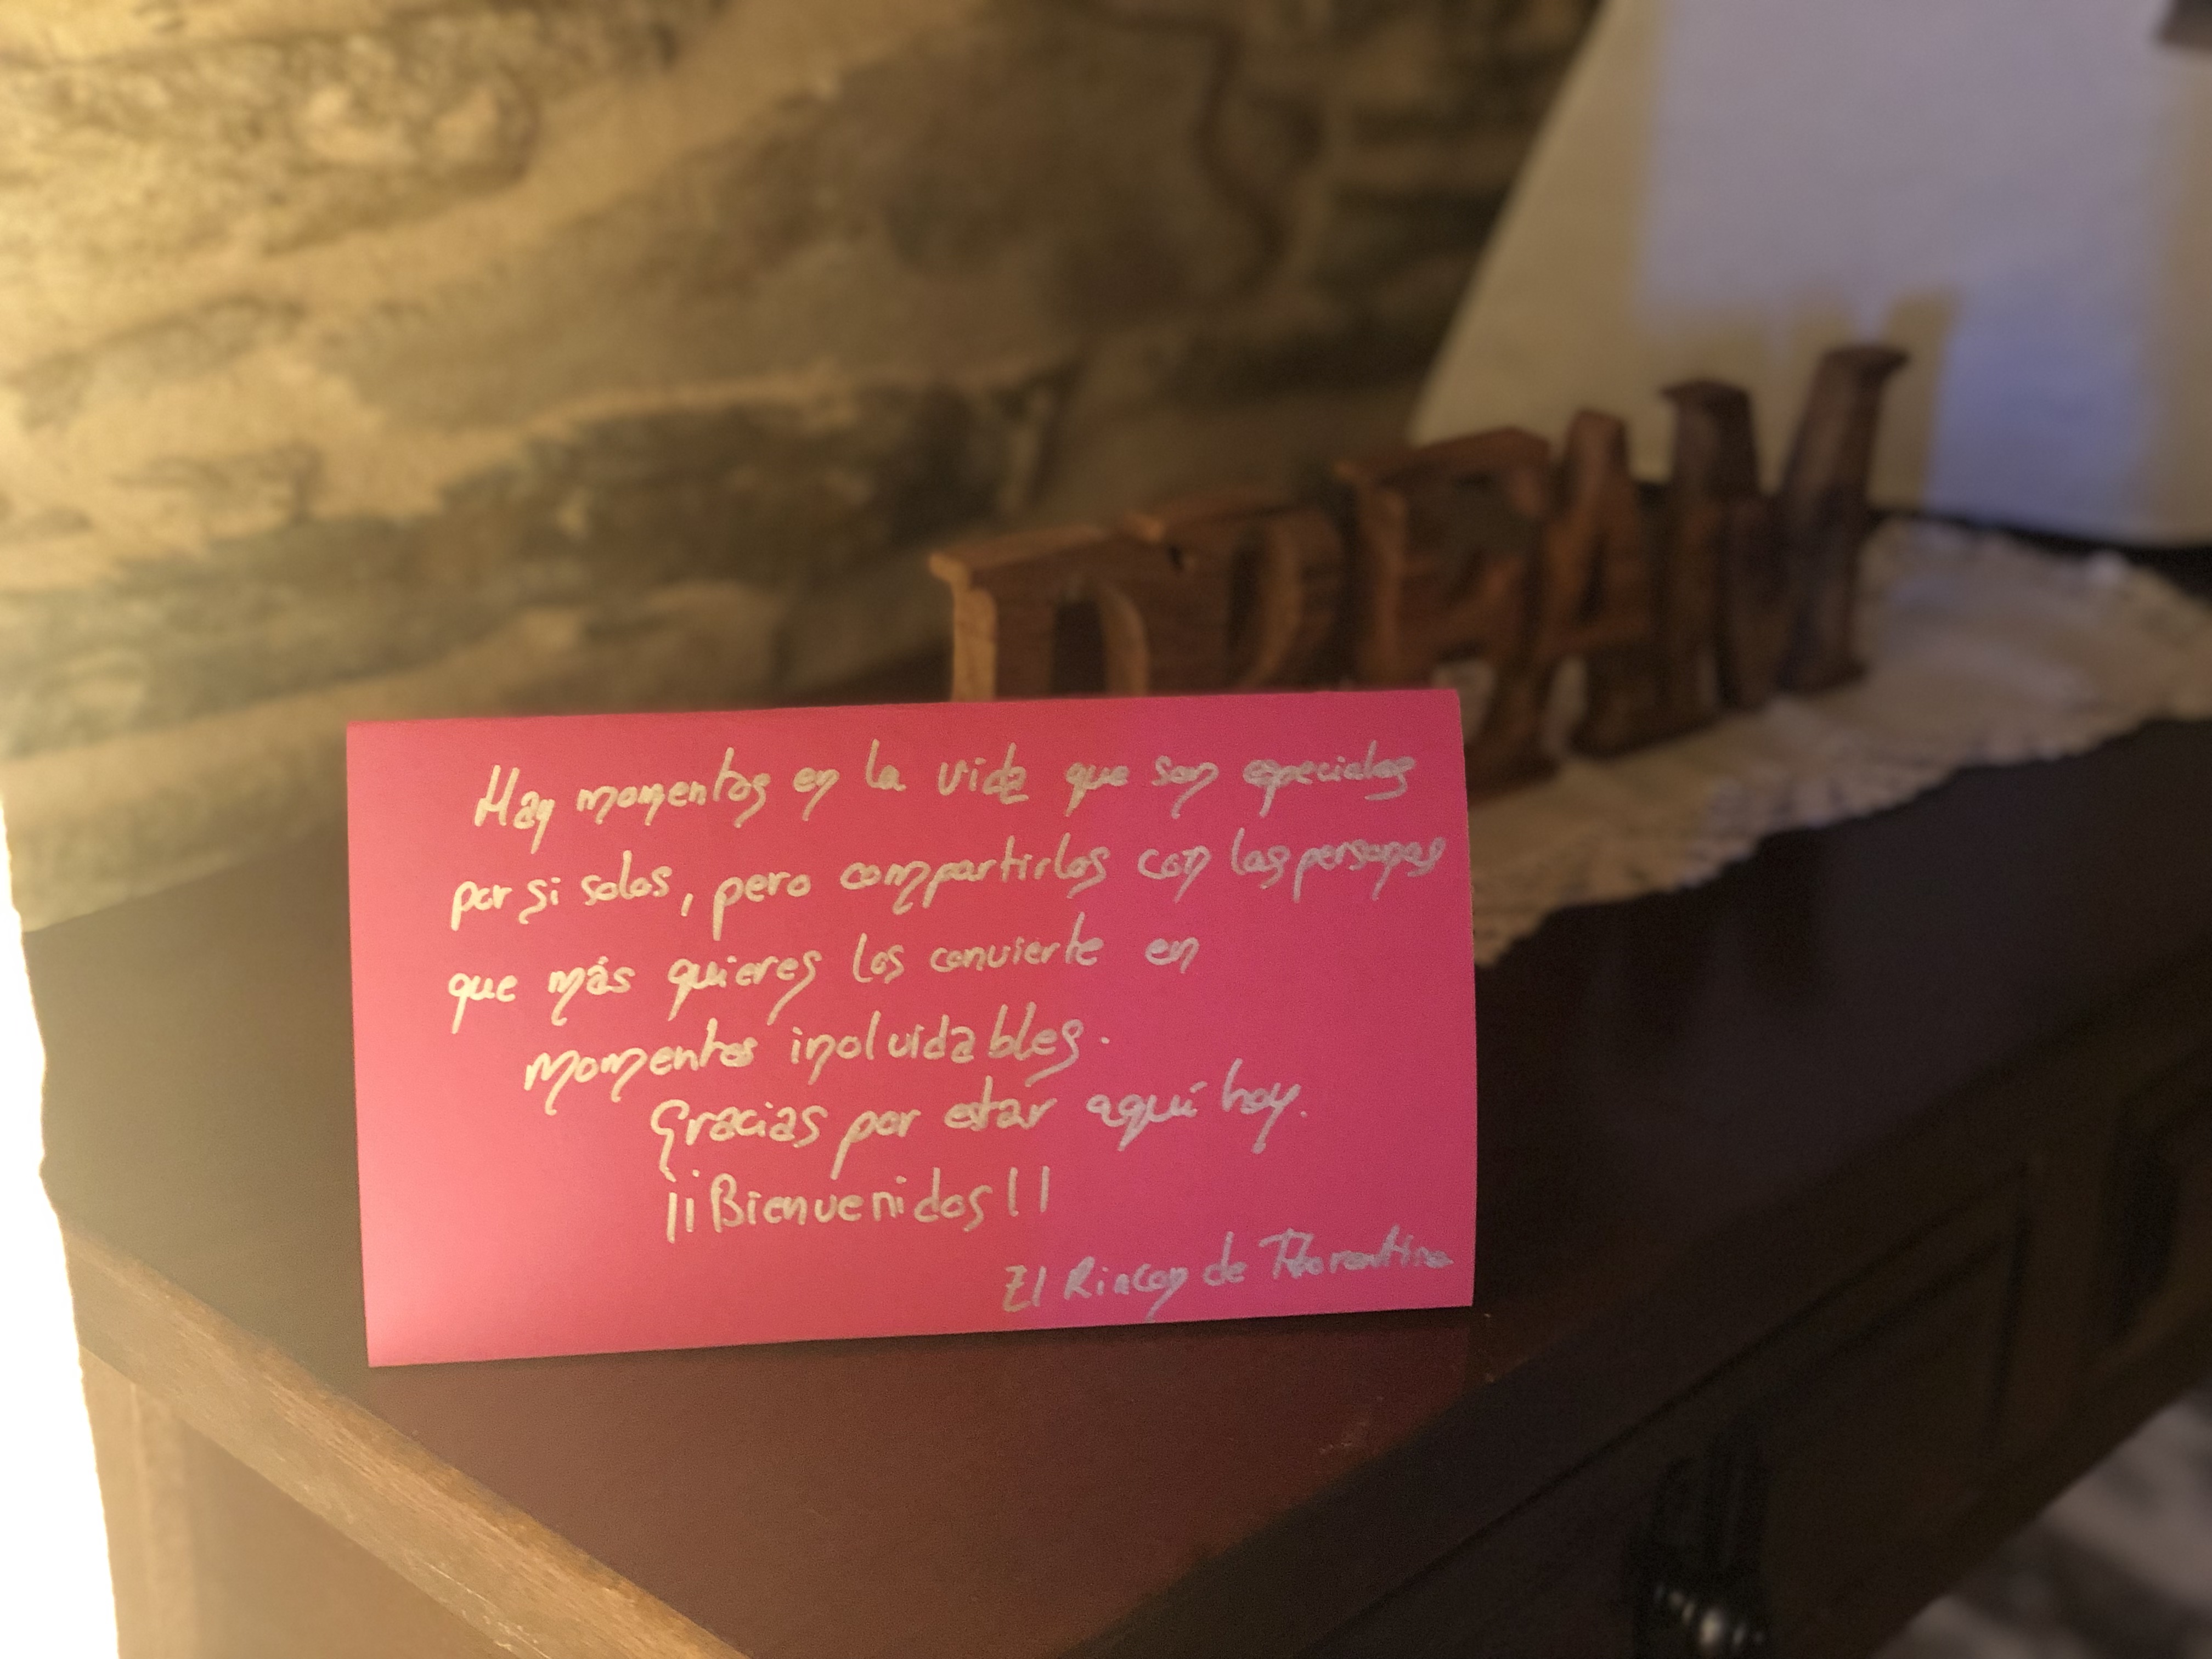 DREAM
Hay momentos en la vida que son especiales
por si solos, pero compartirlos con las personas
que más quieres los convierte en
momentos inolvidables.
Gracias por estar aquí hoy.
¡¡Bienvenidos!!
El Rincon de Florentina